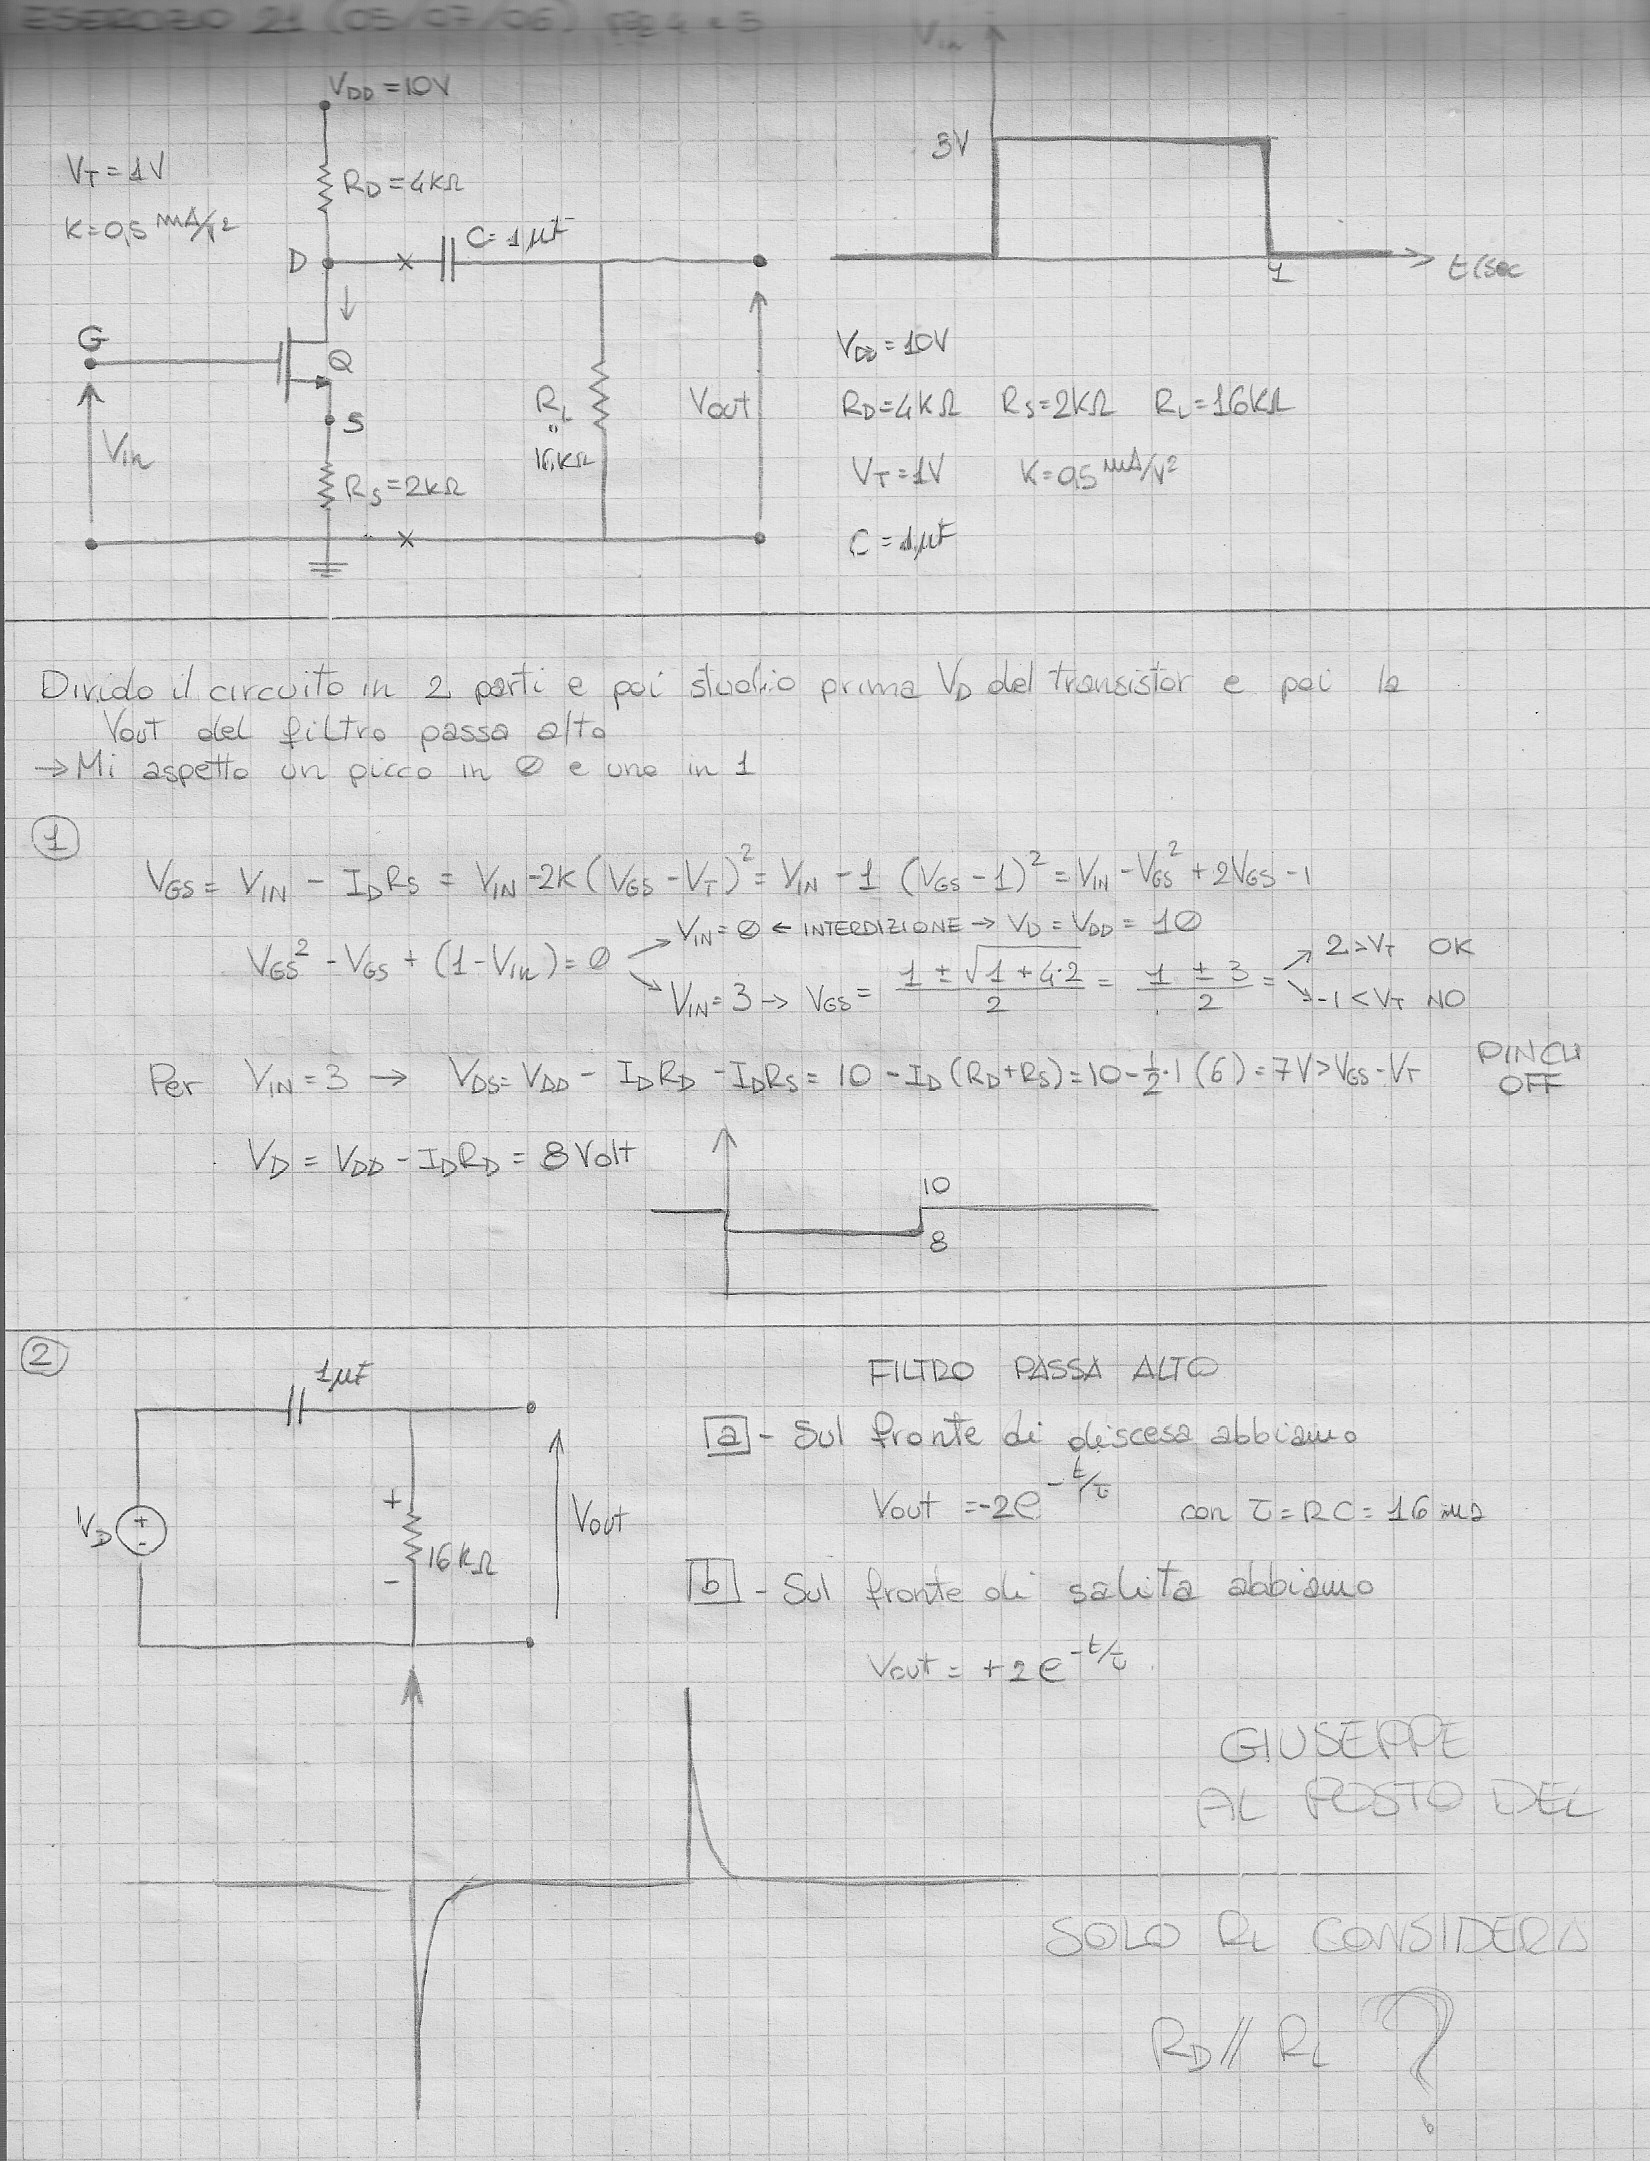 ESERCIZIO 21 (05/07/06) pag 4 e 5
V_in
V_DD = 10V
3V
V_T = 1V
R_D = 4KΩ
K = 0,5 mA/V²
C = 1μF
D
1
t(sec
G
Q
V_DD = 10V
S
R_L
=
16KΩ
Vout
R_D = 4KΩ R_S = 2KΩ R_L = 16KΩ
Vin
R_S = 2KΩ
V_T = 1V K = 0,5 mA/V²
C = 1μF
Divido il circuito in 2 parti e poi studio prima V_D del transistor e poi la
Vout del filtro passa alto
→ Mi aspetto un picco in 0 e uno in 1
1
V_GS = V_IN - I_D R_S = V_IN - 2K (V_GS - V_T)² = V_IN - 1 (V_GS - 1)² = V_IN - V_GS² + 2V_GS - 1
V_GS² - V_GS + (1 - V_in) = 0
V_IN = 0 ← INTERDIZIONE → V_D = V_DD = 10
V_IN = 3 → V_GS = (1 ± √(1 + 4·2))/2 = (1 ± 3)/2 =
2 > V_T OK
-1 < V_T NO
Per V_IN = 3 → V_DS = V_DD - I_D R_D - I_D R_S = 10 - I_D (R_D + R_S) = 10 - 1/2 · 1 (6) = 7V > V_GS - V_T PINCH OFF
V_D = V_DD - I_D R_D = 8 Volt
10
8
2
1μF
FILTRO PASSA ALTO
a - Sul fronte di discesa abbiamo
V_D
+
-
+
-
16KΩ
Vout
Vout = -2e^(-t/τ) con τ = RC = 16 ms
b - Sul fronte di salita abbiamo
Vout = +2e^(-t/τ)
GIUSEPPE
AL POSTO DEL
SOLO R_L CONSIDERA
R_D // R_L ?